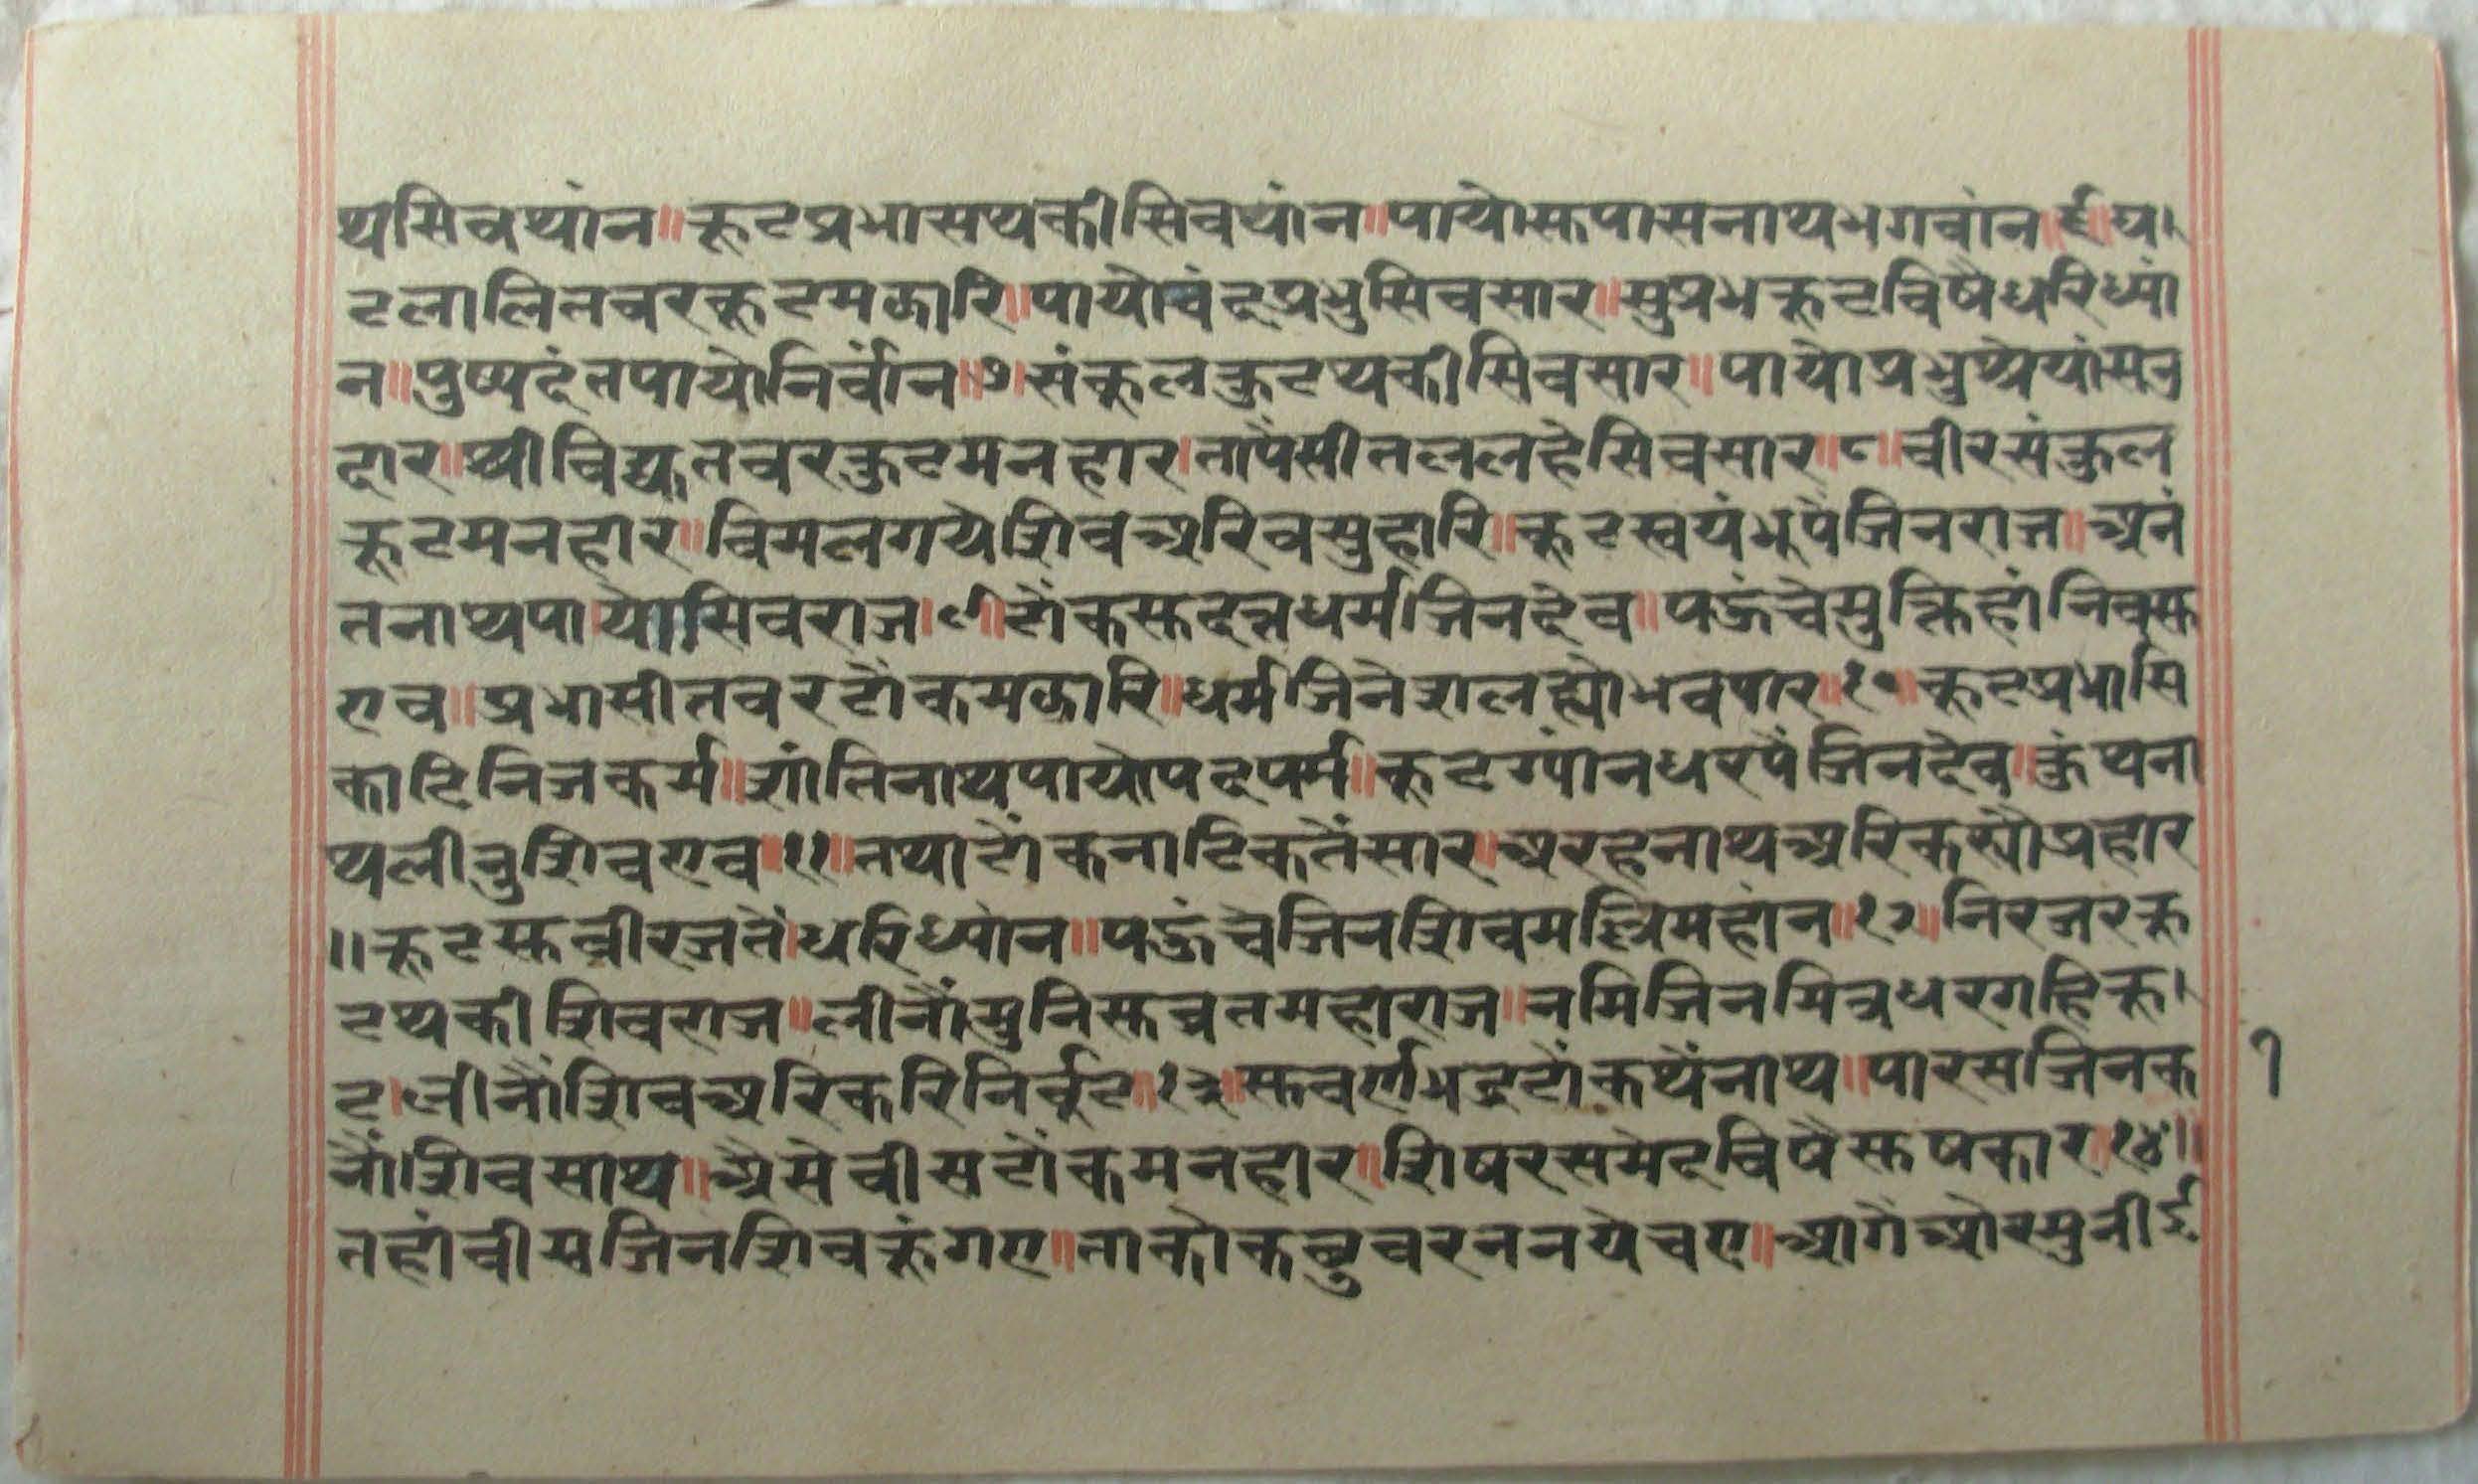 थसिवथांन॥कूटप्रभासथकीसिवथांन॥पायोसुपासनाथभगवांन॥६॥घ।
टलालितवरकूटमझारि॥पायोचंद्रप्रभुसिवसार॥सुप्रभकूटविषैधरिध्यां
न॥पुष्पदंतपायोनिर्वांन॥७॥संकूलकुटथकीसिवसार॥पायोप्रभुश्रेयांसउ
दार॥श्रीविद्युतवरकुटमनहार।तापैंसीतललहेसिवसार॥८॥वीरसंकुल
कूटमनहार॥विमलगयेशिवअरिवसुहारि॥कूटस्वयंभूपैजिनराज॥अनं
तनाथपायोसिवराज।९॥टोंकसुदत्तधर्मजिनदेव॥पऊंचेमुक्तिहांनिवसु
एव॥प्रभासीतवरटोंकमझारि॥धर्मजिनेशलह्योभवपार॥१०॥कूटप्रभासि
काटिनिजकर्म॥शांतिनाथपायोपदपर्म॥कूटग्यांनधरपैंजिनदेव।कुंथना
थलीनुशिवएव॥११॥तथाटोंकनाटिकतैंसार॥अरहनाथअरिकस्योप्रहार
॥कूटसुवीरजतें।धरिध्यांन॥पऊंचेजिनशिवमल्लिमहांन॥१२॥निरजरकू
टथकीशिवराज॥लीनोंमुनिसुव्रतमहाराज॥नमिजिनमित्रधरगहिकू।
ट।लीनोंशिवअरिकरिनिर्वूट॥१३॥सुवर्णभद्रटोंकथेंनाथ॥पारसजिनक
नों।शिवसाथ॥अैसेवीसटोंकमनहार॥शिषरसमेदविषैसुषकार॥१४॥
तहांवीसजिनशिवकूंगए॥ताकोकछुवरननयेचए॥आगेंओरसुनी
१